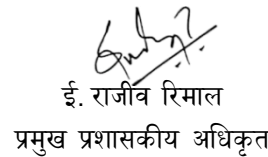 ई. राजीव रिमाल
प्रमुख प्रशासकीय अधिकृत